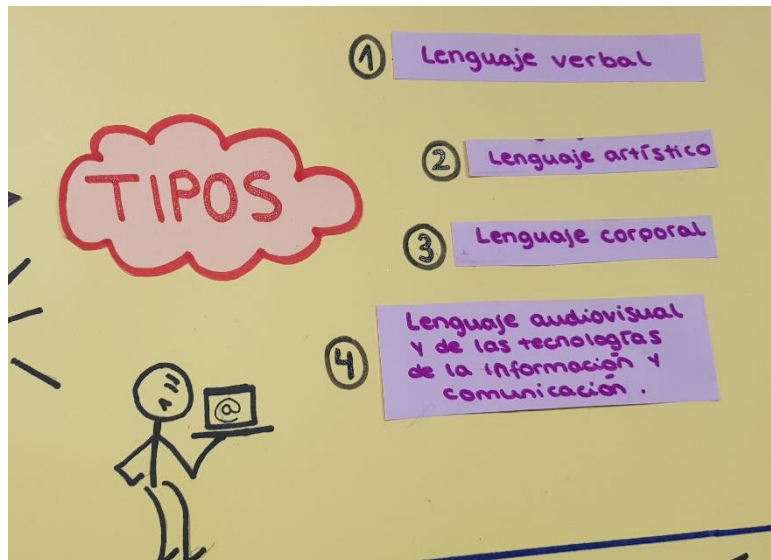 TIPOS
1 Lenguaje verbal
2 Lenguaje artístico
3 Lenguaje corporal
4 Lenguaje audiovisual
y de las tecnologías
de la información y
comunicación.
@